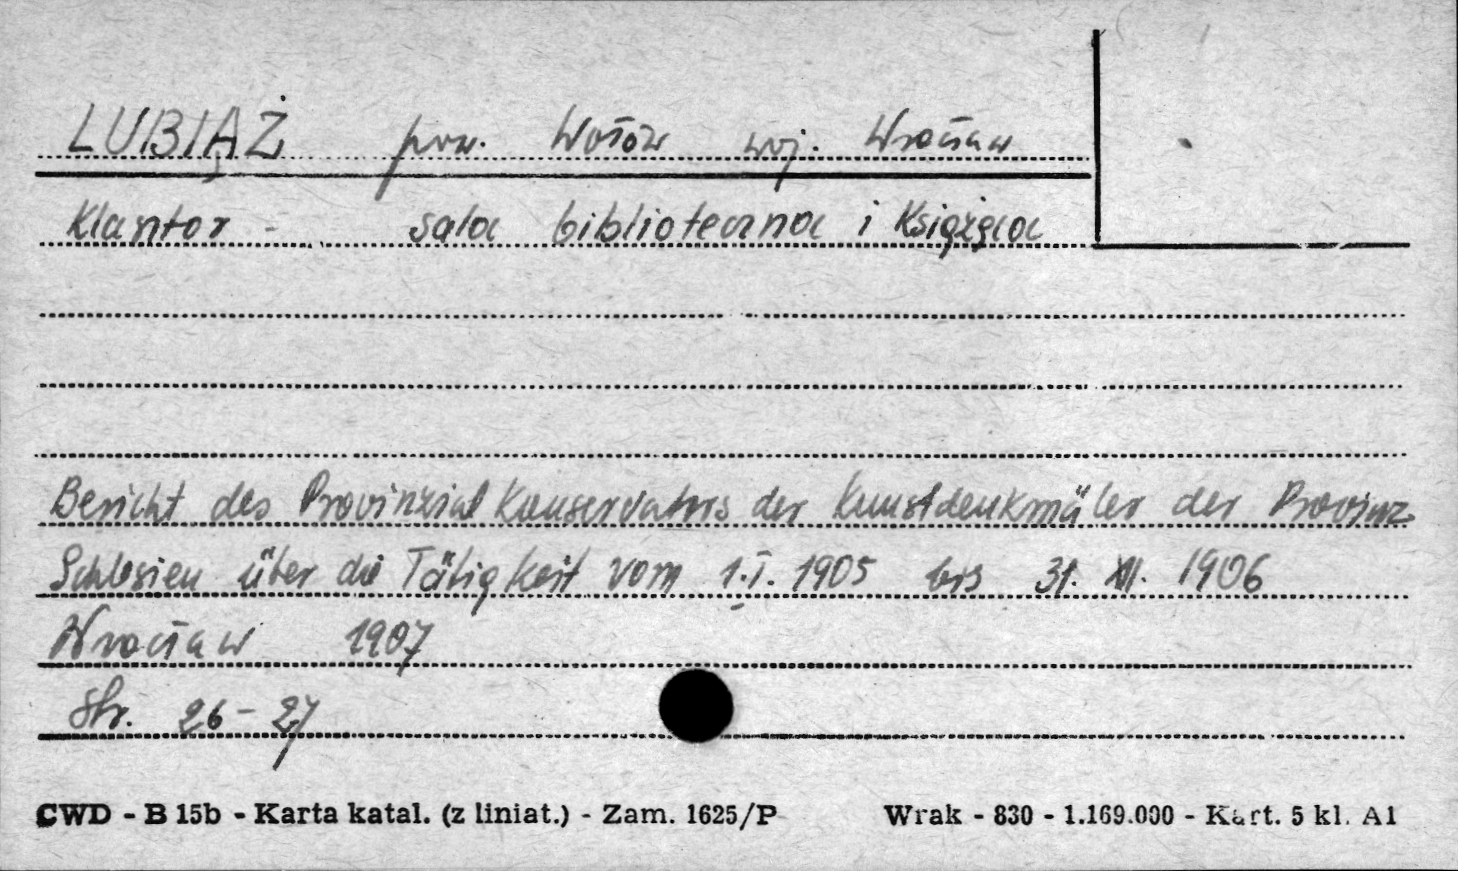 LUBIĄŻ pow. Wołów woj. Wrocław
Klasztor - sala biblioteczna i Książęca
Bericht des Provinzial Konservators der Kunstdenkmäler der Provinz
Schlesien über die Tätigkeit vom 1.I. 1905 bis 31. XII. 1906
Wrocław 1907
Str. 26-27
CWD - B 15b - Karta katal. (z liniat.) - Zam. 1625/P Wrak - 830 - 1.169.000 - Kart. 5 kl. A1